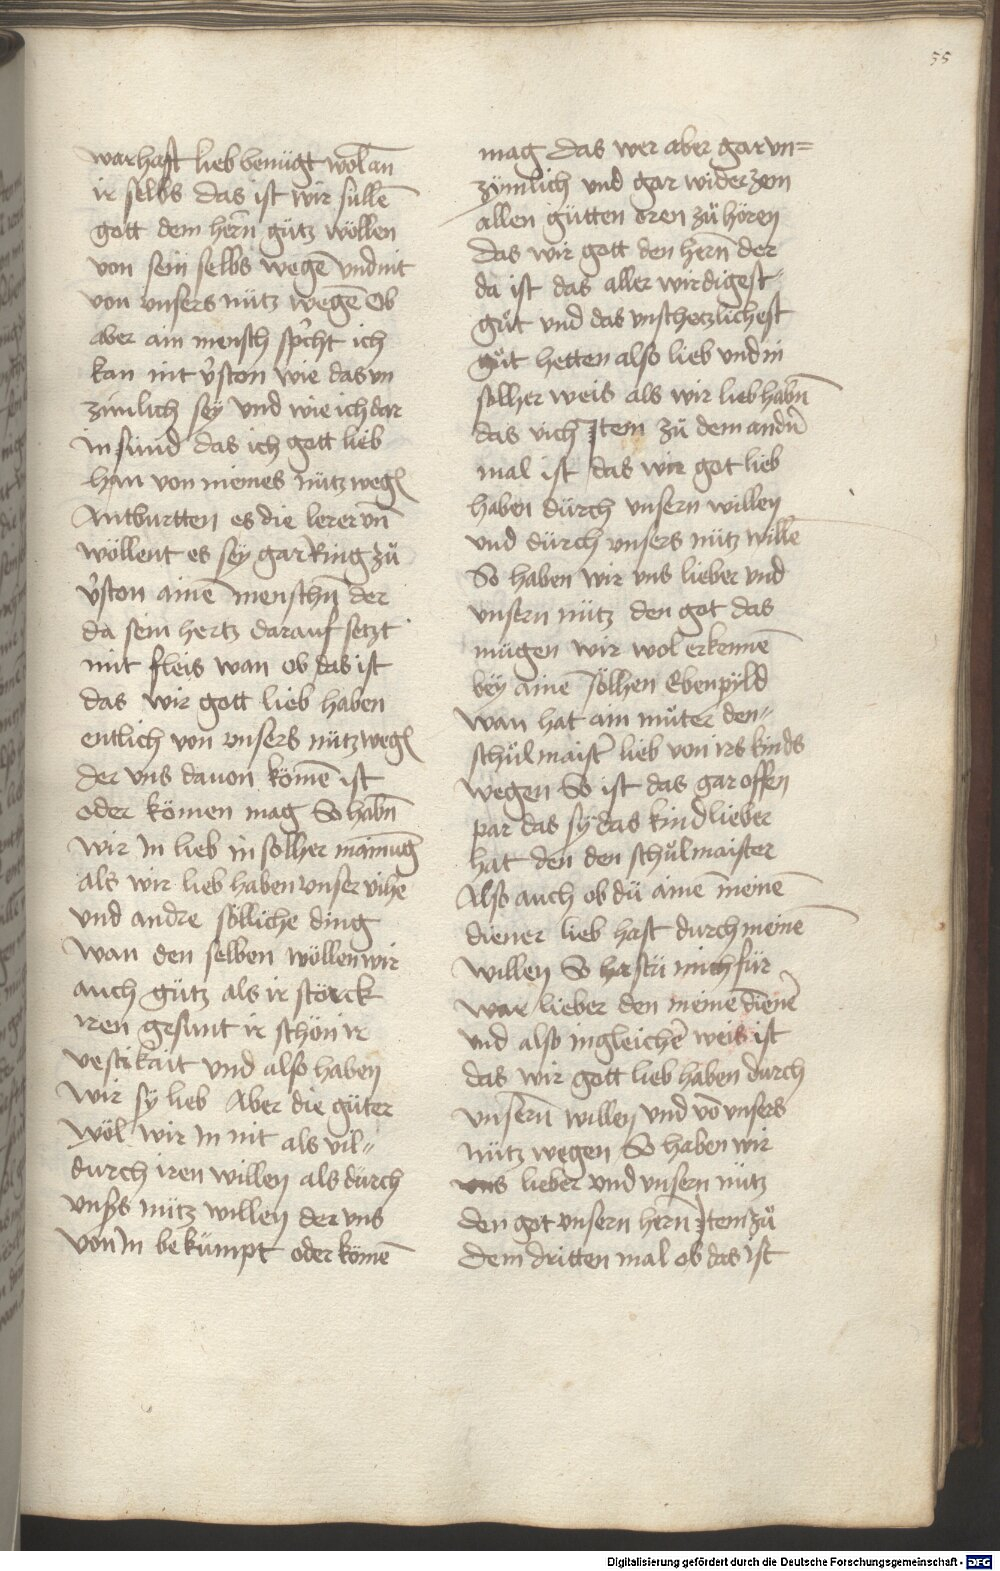 55
warhaft lieb benügt wol an
ir selbs das ist wir süllē
gott dem hern̄ gütz wöllen
von sein selbs wegē vnd nit
von vnsers nütz wegē Ob
aber ain mensch spͥcht ich
kan nit v̾ston wie das vn
zimlich sey vnd wie ich dar
in sünd das ich gott lieb
han von meines nütz wegē
Antburtten es die lerer vn̄
wöllent es sey gar Ring zů
v̾ston ainē menschn̄ der
da sein hertz darauf setzt
mit fleis wan ob das ist
das wir gott lieb haben
entlich von vnsers nütz wegē
der vns dauon kömē ist
oder kömen mag So habn̄
wir in lieb in sölher mainūg
als wir lieb haben vnser vihe
vnd andre sölliche ding
wan den selben wöllen wir
auch gütz als ir störck
iren gesunt ir schön ir
vestikait vnd also haben
wir sy lieb Aber die güter
wöl wir in nit als vil〃
durch iren willen als durch
vnsers nütz willen der vns
von in bekümpt oder kömē
mag das wer aber gar vn=
zymlich vnd gar wider zem
allen gütten oren zů hören
das wir gott den hern̄ der
da ist das aller wirdigest
gůt vnd das vnschetzlichest
gůt hetten also lieb vnd in
sölher weis als wir lieb habn̄
das vich Jtem zů dem andn̄
mal ist das wir got lieb
haben dürch vnsern willen
vnd dürch vnsers nütz willē
So haben wir vns lieber vnd
vnsern nütz den got das
mügen wir wol erkennē
bëy ainē sölhen Ebenpyld
wan hat ain můter den〃
schůlmaist̾ lieb von irs kinds
wegen So ist das gar offen
par das sy das kind lieber
hat den den schůlmaister
Also auch ob dü ainē meinē
diener lieb hast durch meinē
willen So hastü mich für
war lieber den meinē dienē
vnd also in gleichē weis ist
das wir gott lieb haben durch
vnsern̄ willen vnd vō vnsers
nütz wegen So haben wir
vns lieber vnd vnsern nütz
den got vnsern hern̄ Jtem zů
dem dritten mal ob das ist
Digitalisierung gefördert durch die Deutsche Forschungsgemeinschaft - DFG